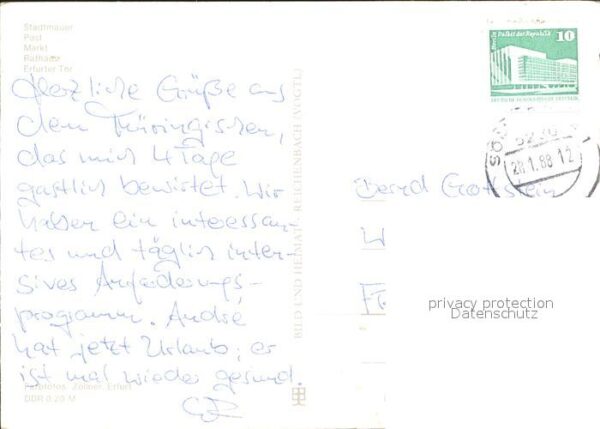 Stadtmauer
Post
Markt
Rathaus
Erfurter Tor
Herzliche Grüße aus
dem Thüringischen,
das mich 4 Tage
gastlich bewirtet. Wir
haben ein interessan-
tes und täglich inten-
sives Anforderungs-
programm. André
hat jetzt Urlaub; er
ist mal wieder gesund.
Farbfotos: Zöllner, Erfurt
DDR 0,20 M
BILD UND HEIMAT REICHENBACH (VOGTL)
Berlin Palast der Republik
10
DEUTSCHE DEMOKRATISCHE REPUBLIK
SÖM
5230
28.1.88 12
Bernd Gottstein
W
privacy protection
Datenschutz